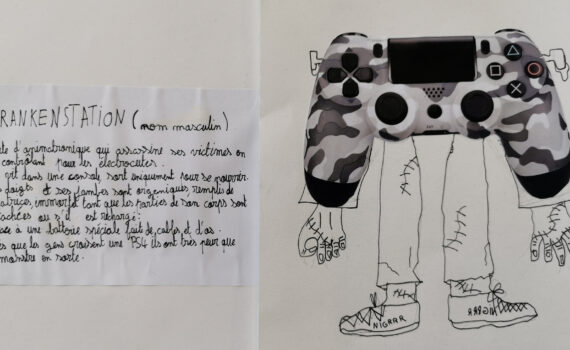 RANKENSTATION (nom masculin)
d'animatronique qui assassine ses victimes en
controlant pour les electrocutés.
git dans une console sort uniquement pour se nourrir.
doigts et ses jambes sont organiques remplis de
immortel tant que les parties de son corps sont
ou s'il est rechargé:
à une batterie spéciale fait de cables et d'os.
que les gens croisent une PS4 ils ont très peur que
monstre en sorte.
NIGRRR
NIGRRR